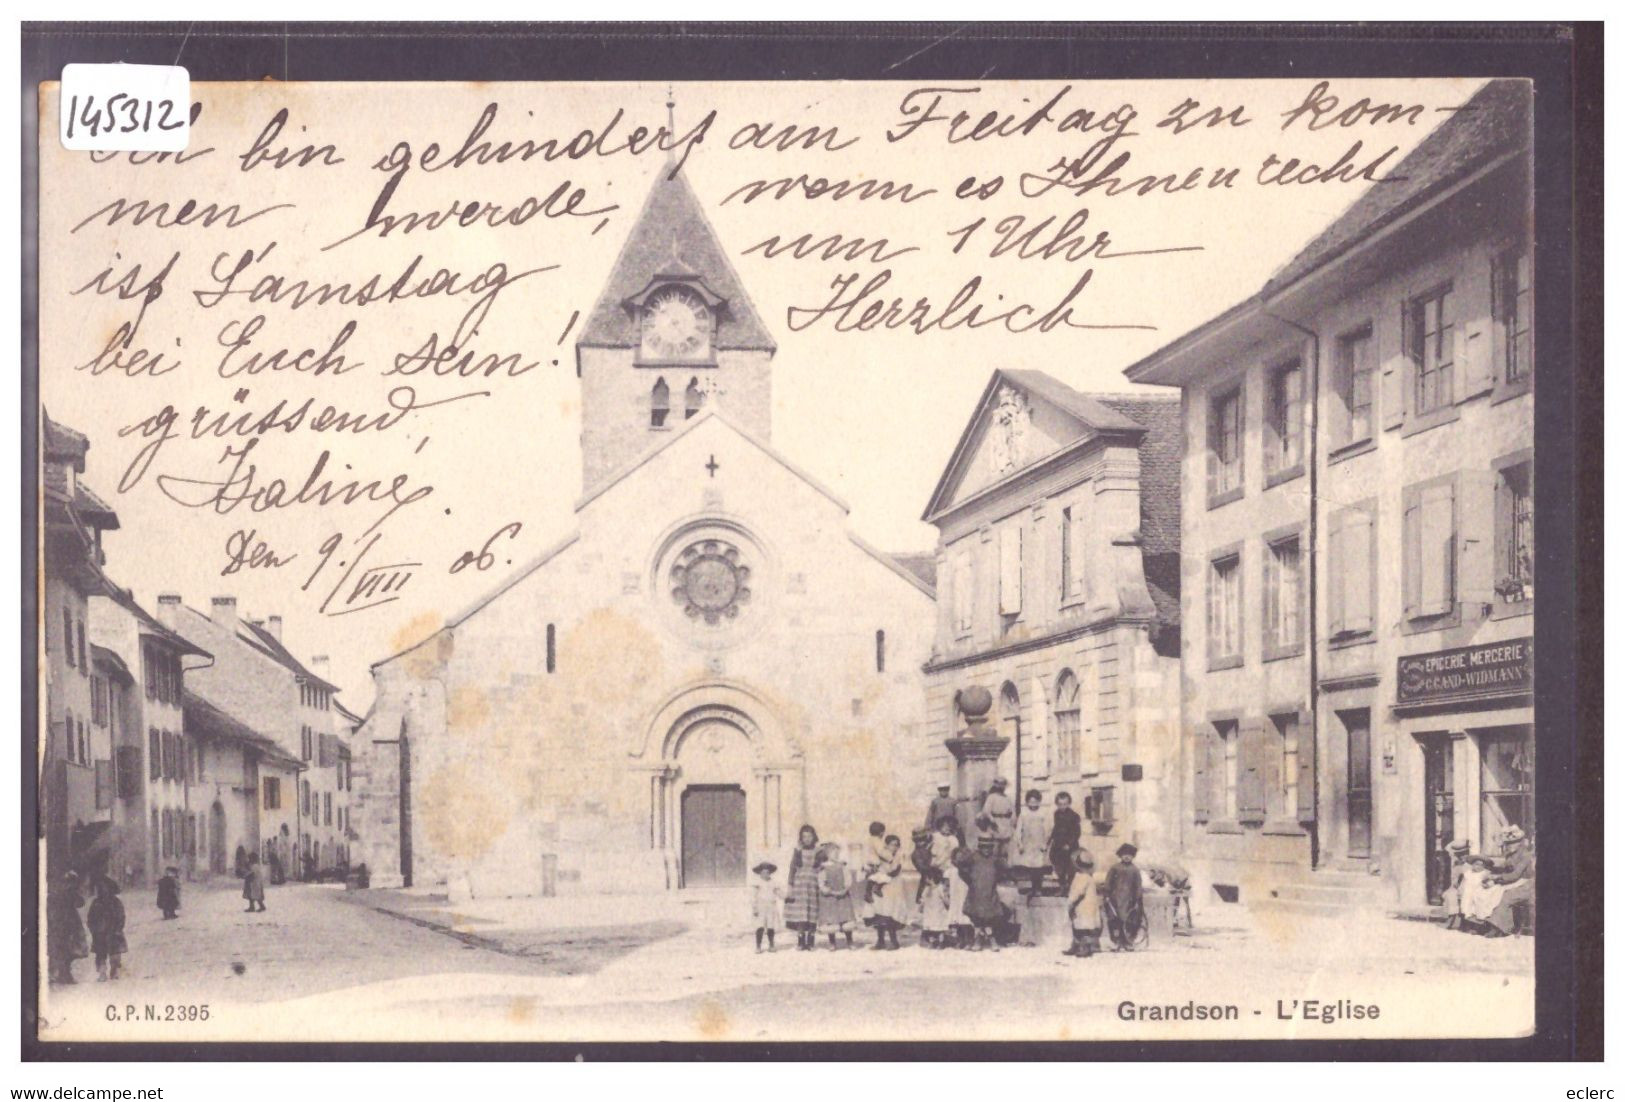 145312
Ich bin gehindert am Freitag zu kom-
men, werde, wenn es Ihnen recht
ist Samstag um 1 Uhr
bei Euch sein! Herzlich
grüssend,
Isaline.
Den 9./VIII 06.
EPICERIE MERCERIE
C. GAND-WIDMANN
C.P.N. 2395
Grandson - L'Eglise
www.delcampe.net
eclerc